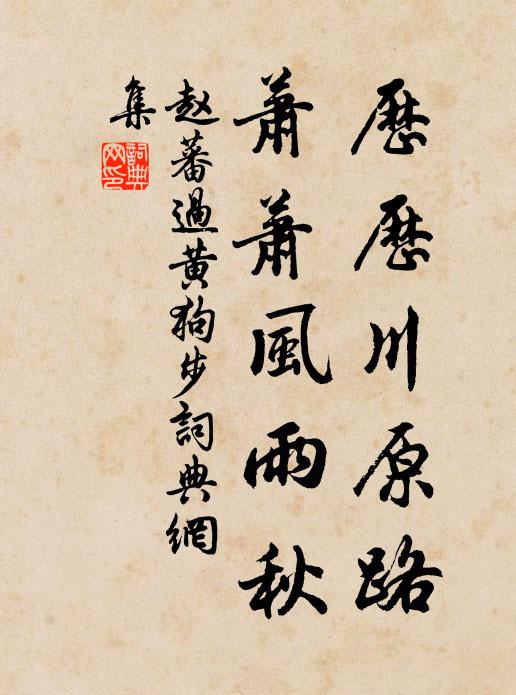 歷歷川原路
蕭蕭風雨秋
赵蕃過黃狗步詞典網
集
詞典
网印